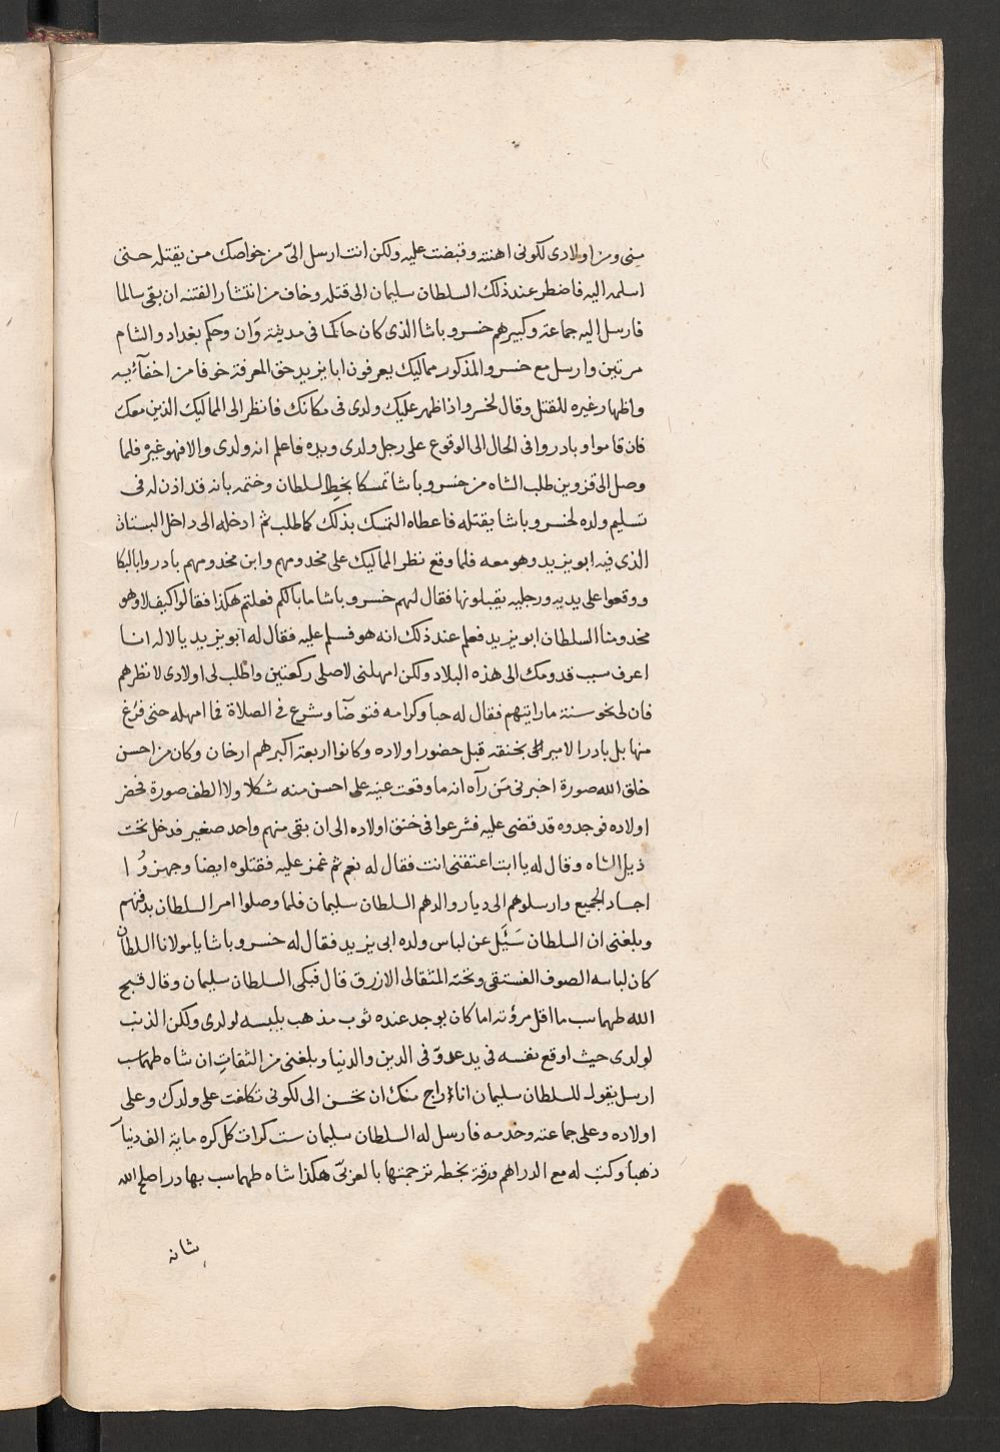 منى ومن اولادى لكونى اهنته وقبضت عليه ولكن انت ارسل الىّ من خواصك من يقتله حتى
اسلمه اليه فاضطر عند ذلك السلطان سليمان الى قتله وخاف من انتشار الفتنه ان بقى سالما
فارسل اليه جماعة وكبيرهم خسرو باشا الذى كان حاكما فى مدينة وَان وحكم بغداد والشام
مرتين وارسل مع خسرو المذكور مماليك يعرفون ابا يزيد حق المعرفة خوفا من اخفآئيه
واظهار غيره للقتل وقال لخسرو اذا ظهر عليك ولدى فى مكانك فانظر الى المماليك الذين معك
فان قاموا وبادروا فى الحال الى الوقوع على رجل ولدى ويده فاعلم انه ولدى والا فهو غيره فلما
وصل الى قزوين طلب الشاه من خسرو باشا تمسكا بخط السلطان وختمه بانه قد اذن له فى
تسليم ولده لخسرو باشا يقتله فاعطاه التمسك بذلك كما طلب ثم ادخله الى داخل البستان
الذى فيه ابو يزيد وهو معه فلما وقع نظر المماليك على مخدومهم وابن مخدومهم بادروا بالبكا
ووقعوا على يديه ورجليه يقبلونها فقال لهم خسرو باشا ما بالكم فعلتم هكذا فقالوا كيف لا وهو
مخدومنا السلطان ابو يزيد فعلم عند ذلك انه هو فسلم عليه فقال له ابو يزيد يا لاله انا
اعرف سبب قدومك الى هذه البلاد ولكن امهلنى لاصلى ركعتين واطلب لى اولادى لانظرهم
فان لى نحو سنة ما رايتهم فقال له حبا وكرامه فتوضّا وشرع فى الصلاة فما امهله حتى فرغ
منها بل بادر الامير الى بخنقه قبل حضور اولاده وكانوا اربعة اكبرهم ارخان وكان من احسن
خلق الله صورة اخبرنى مَن رآه انه ما وقعت عينه على احسن منه شكلا ولا الطف صورة فحضر
اولاده فوجدوه قد قضى عليه فشرعوا فى خنق اولاده الى ان بقى منهم واحد صغير فدخل تحت
ذيل الشاه وقال له يا ابت اعتقتنى انت فقال له نعم ثم غمز عليه فقتلوه ايضا وجهزوُا
اجساد الجميع وارسلوهم الى ديار والدهم السلطان سليمان فلما وصلوا امر السلطان بدفنهم
وبلغنى ان السلطان سَيَل عن لباس ولده ابى يزيد فقال له خسرو باشا يا مولانا السلطان
كان لباسه الصوف الفستقى وتحته المثقالى الازرق قال فبكى السلطان سليمان وقال قبح
الله طهماسب ما اقل مروٴته اما كان يوجد عنده ثوب مذهب يلبسه لولدى ولكن الذنب
لولدى حيث اوقع نفسه فى يد عدوّ فى الدين والدنيا وبلغنى من الثقات ان شاه طهماسب
ارسل يقول للسلطان سليمان انا راج منك ان تحسن الى لكونى تكلفت على ولدك وعلى
اولاده وعلى جماعته وخدمه فارسل له السلطان سليمان ست كرات كل كره ماية الف دينار
ذهبا وكتب له مع الدراهم ورقة بخطه ترجمتها بالعربىّ هكذا شاه طهماسب بهادر اصلح الله
شانه